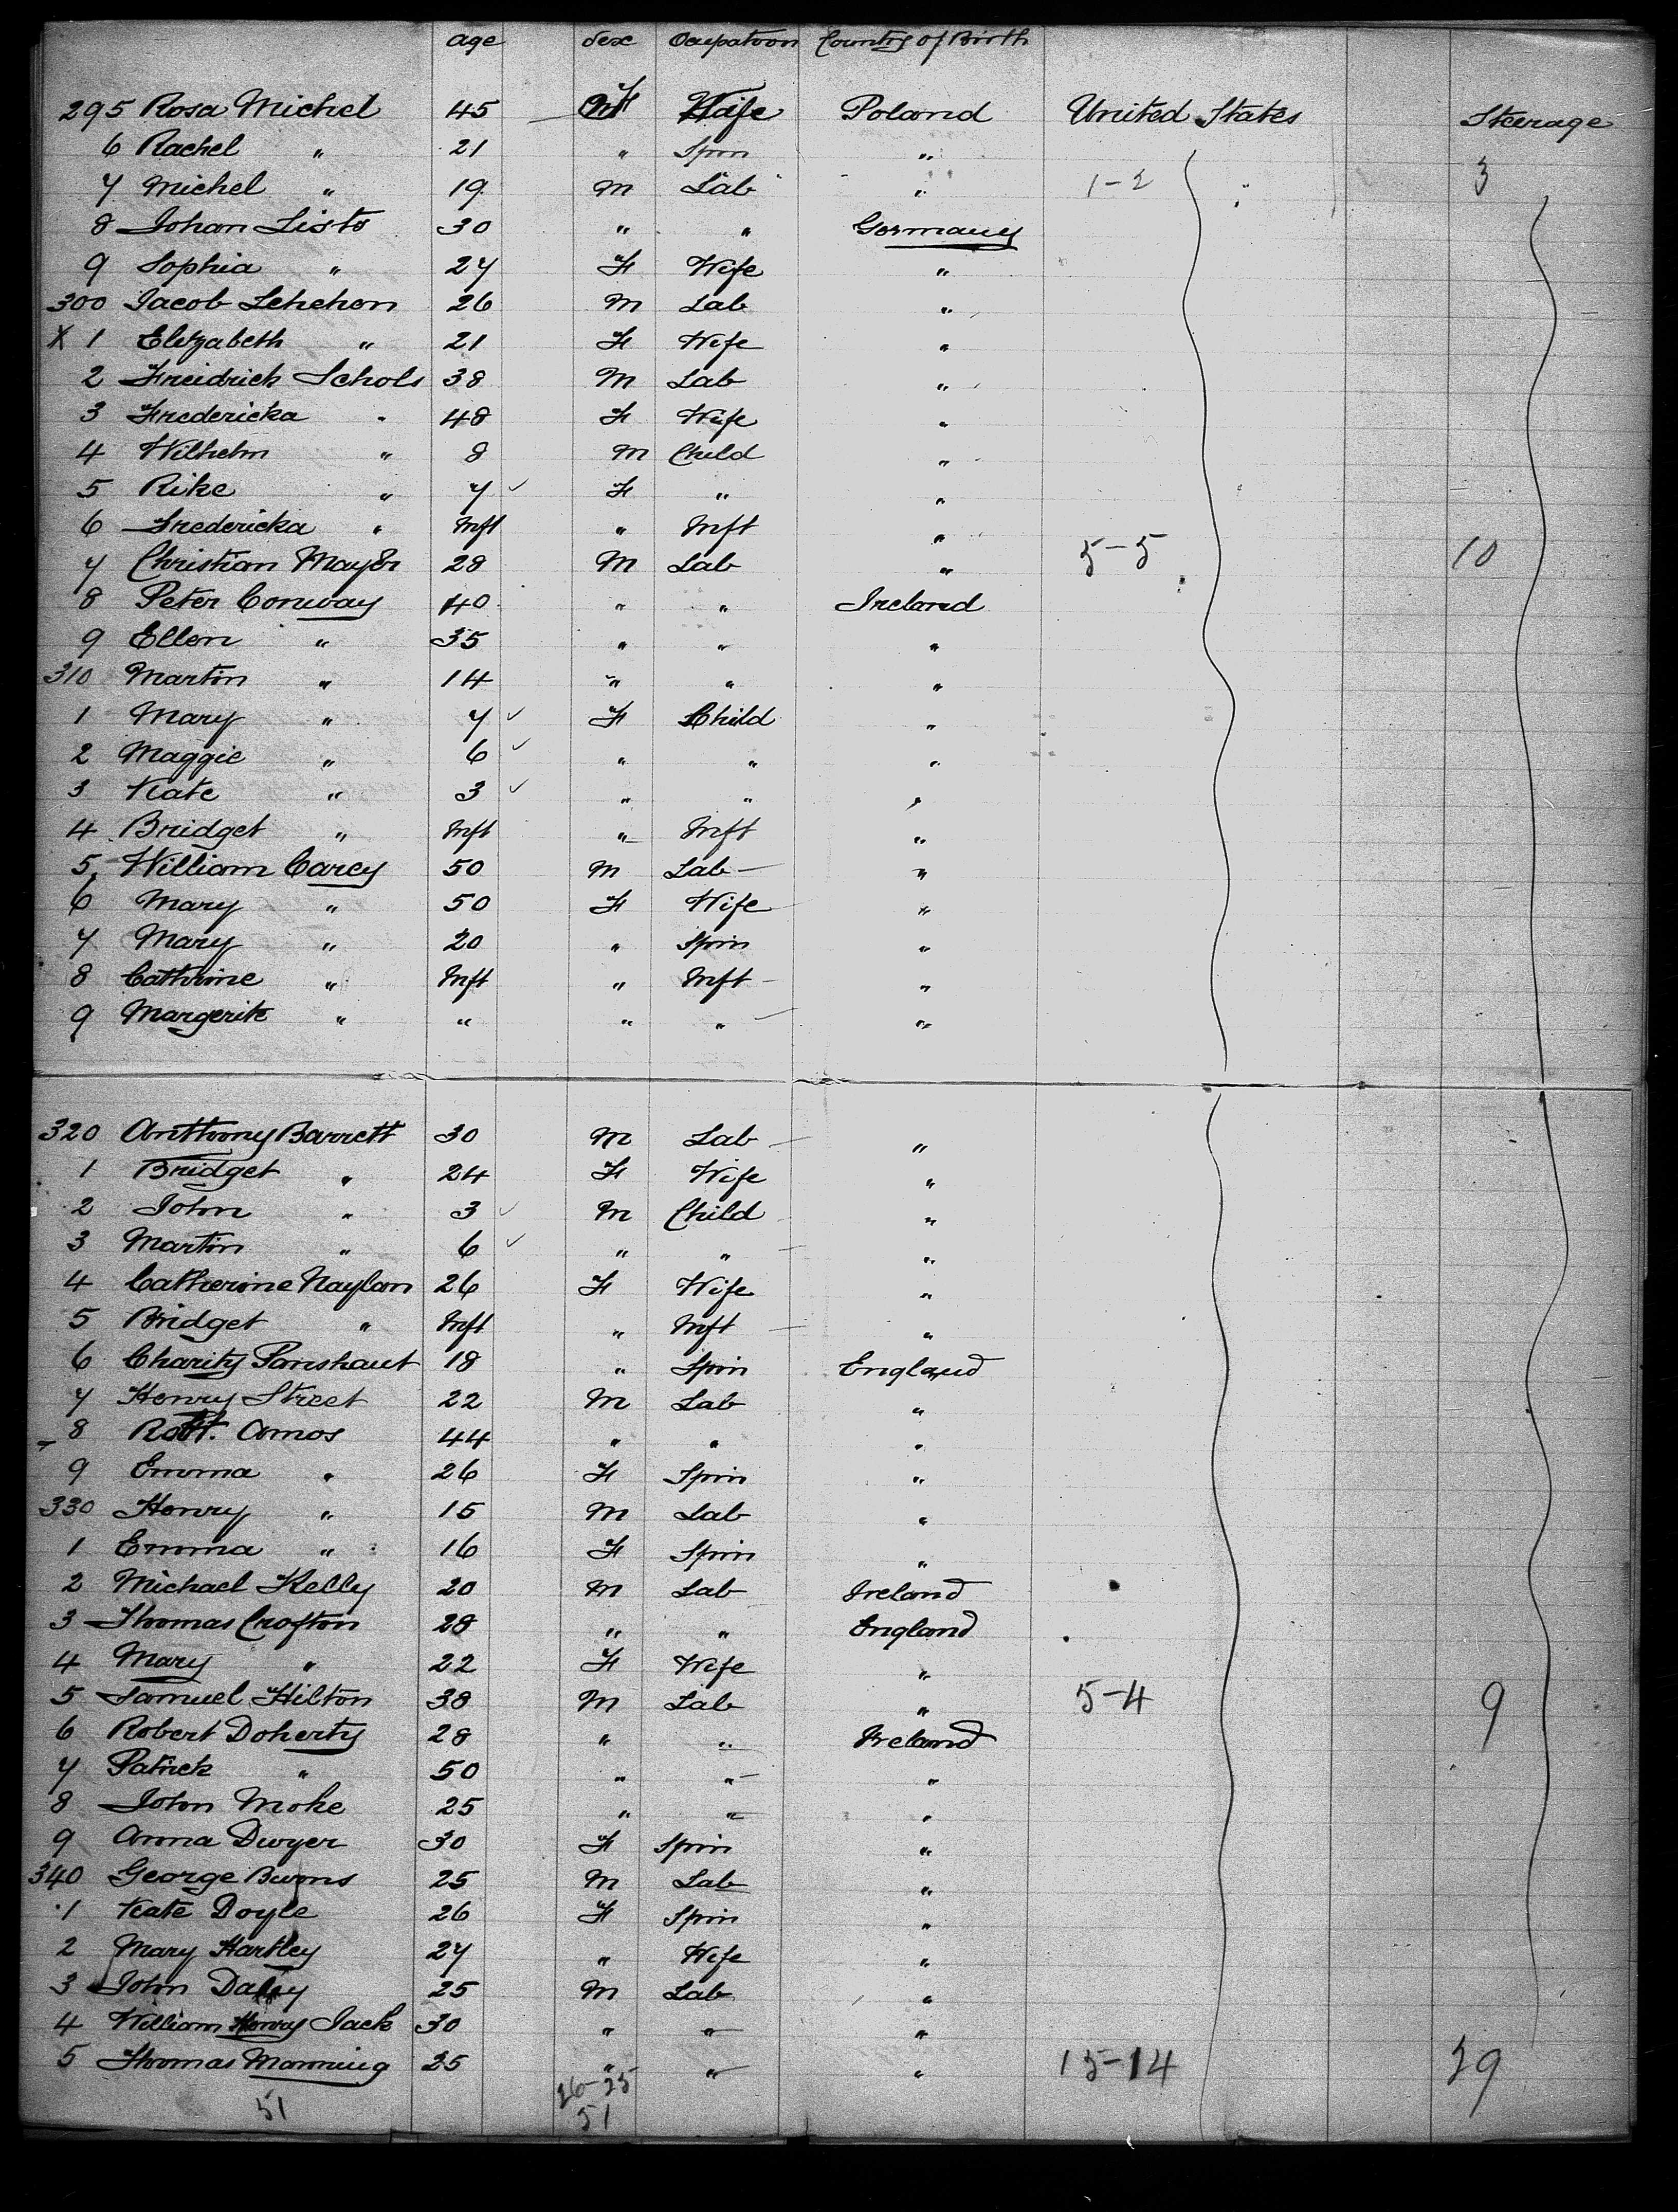 age Sex Ocupatoon Country of Birth
295 Rosa Michel 45 F Wife Poland United States Steerage
6 Rachel " 21 " Spin "
7 Michel " 19 M Lab " 1-2 3
8 Johan Lists 30 " " Germany
9 Sophia " 27 F Wife "
300 Jacob Schehon 26 M Lab "
X 1 Elizabeth " 21 F Wife "
2 Freidrich Schols 38 M Lab "
3 Fredericka " 48 F Wife "
4 Wilhelm " 8 M Child "
5 Rike " 7 ✓ F " "
6 Fredericka " Inft " Inft "
7 Christian Mayer 28 M Lab " 5-5 10
8 Peter Conway 40 " " Ireland
9 Ellen " 35 " " "
310 Martin " 14 " " "
1 Mary " 7 ✓ F Child "
2 Maggie " 6 ✓ " " "
3 Kate " 3 ✓ " " "
4 Bridget " Inft " Inft "
5 William Carey 50 M Lab "
6 Mary " 50 F Wife "
7 Mary " 20 " Spin "
8 Cathrine " Inft " Inft "
9 Margerite " " " " "
320 Anthony Barrett 30 M Lab "
1 Bridget " 24 F Wife "
2 John " 3 ✓ M Child "
3 Martin " 6 ✓ " " "
4 Catherine Naylon 26 F Wife "
5 Bridget " Inft " Inft "
6 Charity 18 " Spin England
7 Henry Street 22 M Lab "
8 Robt. Amos 44 " " "
9 Emma " 26 F Spin "
330 Henry " 15 M Lab "
1 Emma " 16 F Spin "
2 Michael Kelly 20 M Lab Ireland
3 Thomas Crofton 28 " " England
4 Mary " 22 F Wife "
5 Samuel Hilton 38 M Lab " 5-4 9
6 Robert Doherty 28 " " Ireland
7 Patrick " 50 " " "
8 John Moke 25 " " "
9 Anna Dwyer 30 F Spin "
340 George 25 M Lab "
1 Kate Doyle 26 F Spin "
2 Mary Hartley 27 " Wife "
3 John Daley 25 M Lab "
4 William Henry Jack 30 " " "
5 Thomas Manning 25 " " " 15-14 29
26-25
51 51